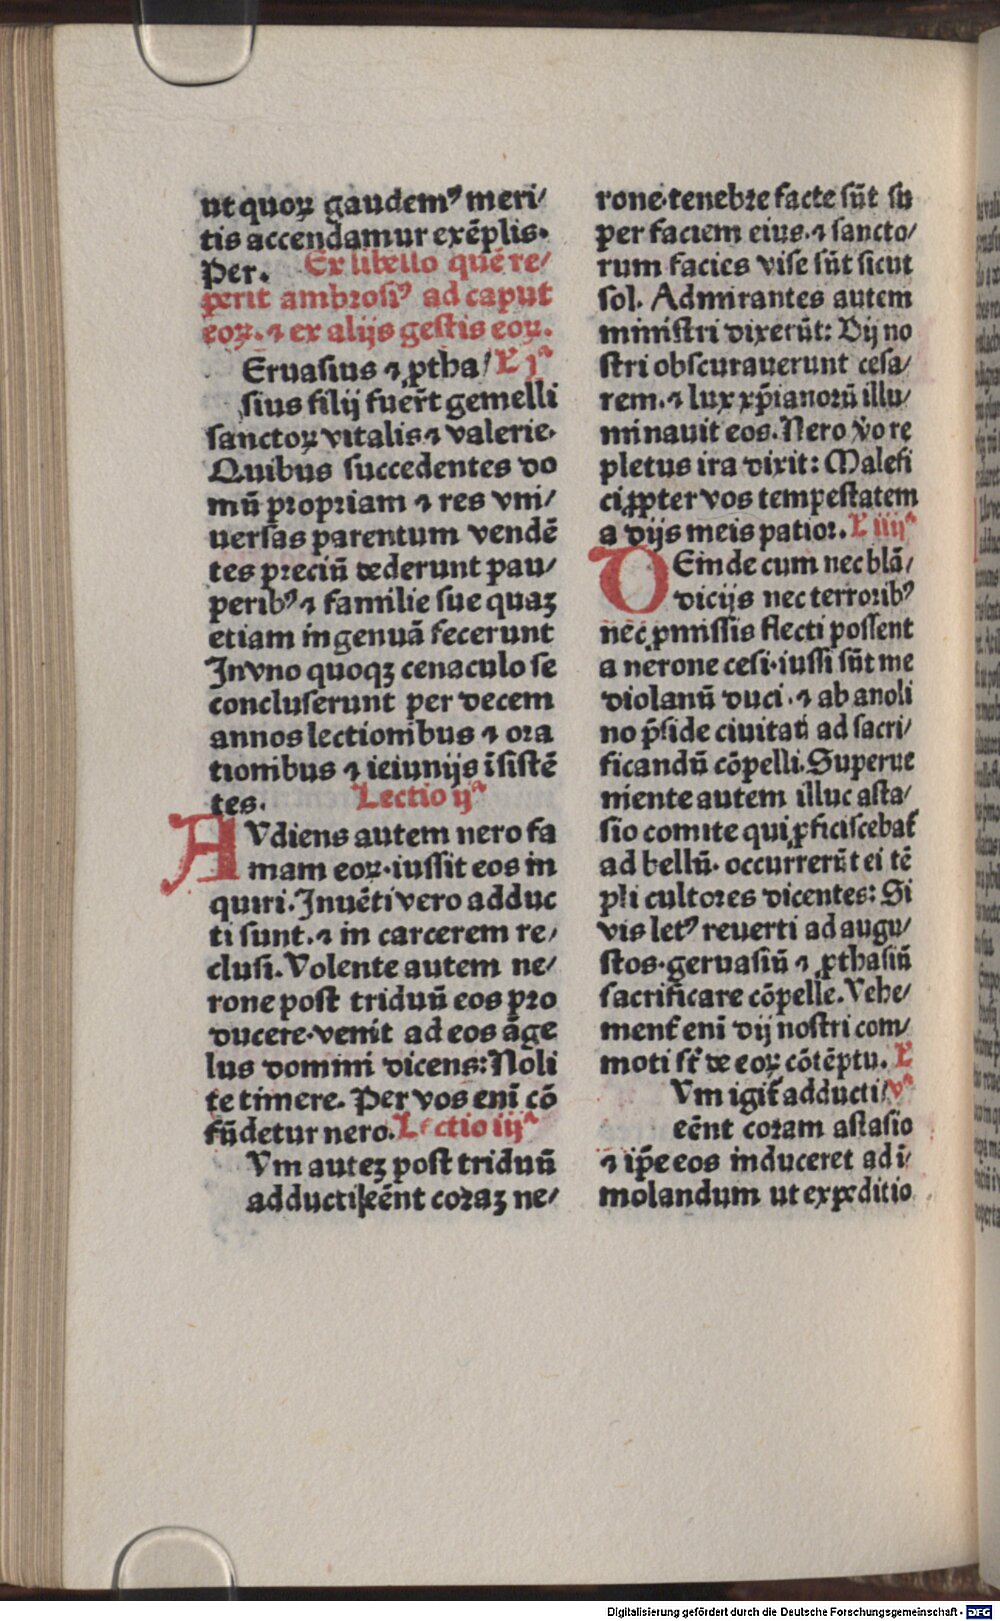 ut quoꝝ gaudemꝰ meri/
tis accendamur exēplis.
Per. Ex libello quē re/
perit ambrosiꝰ ad caput
eoꝝ. ⁊ ex alijs gestis eoꝝ.
Eruasius ⁊ ꝓtha/ L jᵃ
sius filij fuer̄t gemelli
sanctoꝝ vitalis ⁊ valerie.
Quibus succedentes do
mū propriam ⁊ res vni/
uersas parentum vendē
tes preciū dederunt pau/
peribꝰ ⁊ familie sue quaꝫ
etiam ingenuā fecerunt
In vno quoqꝫ cenaculo se
concluserunt per decem
annos lectionibus ⁊ ora
tionibus ⁊ ieiunijs īsistē
tes. Lectio ijᵃ
AVdiens autem nero fa
mam eoꝝ. iussit eos in
quiri. Inuēti vero adduc
ti sunt. ⁊ in carcerem re/
clusi. Volente autem ne/
rone post triduū eos pro
ducere. venit ad eos āge
lus domini dicens: Noli
te timere. Per vos enī cō
fūdetur nero. Lectio iijᵃ
Vm auteꝫ post triduū
adducti eēnt coraꝫ ne/
rone. tenebre facte sūt su
per faciem eius. ⁊ sancto/
rum facies vise sūt sicut
sol. Admirantes autem
ministri dixerūt: Dij no
stri obscurauerunt cesa/
rem. ⁊ lux xp̄ianorū illu/
minauit eos. Nero v̄o re
pletus ira dixit: Malefi
ci ꝓpter vos tempestatem
a dijs meis patior. L iiijᵃ
DEinde cum nec blā/
dicijs nec terroribꝰ
nec ꝓmissis flecti possent
a nerone cesi. iussi sūt me
diolanū duci. ⁊ ab anoli
no p̄side ciuitati ad sacri/
ficandū cōpelli. Superue
niente autem illuc asta/
sio comite qui ꝓficiscebat̄
ad bellū. occurrerūt ei tē
pli cultores dicentes: Si
vis letꝰ reuerti ad augu/
stos. geruasiū ⁊ ꝓthasiū
sacrificare cōpelle. Vehe/
ment̄ enī dij nostri com/
moti st̄ de eoꝝ cōtēptu. L
Vm igit̄ adducti/ vᵃ
eēnt coram astasio
⁊ ip̄e eos induceret ad ī/
molandum ut expeditio
Digitalisierung gefördert durch die Deutsche Forschungsgemeinschaft - DFG